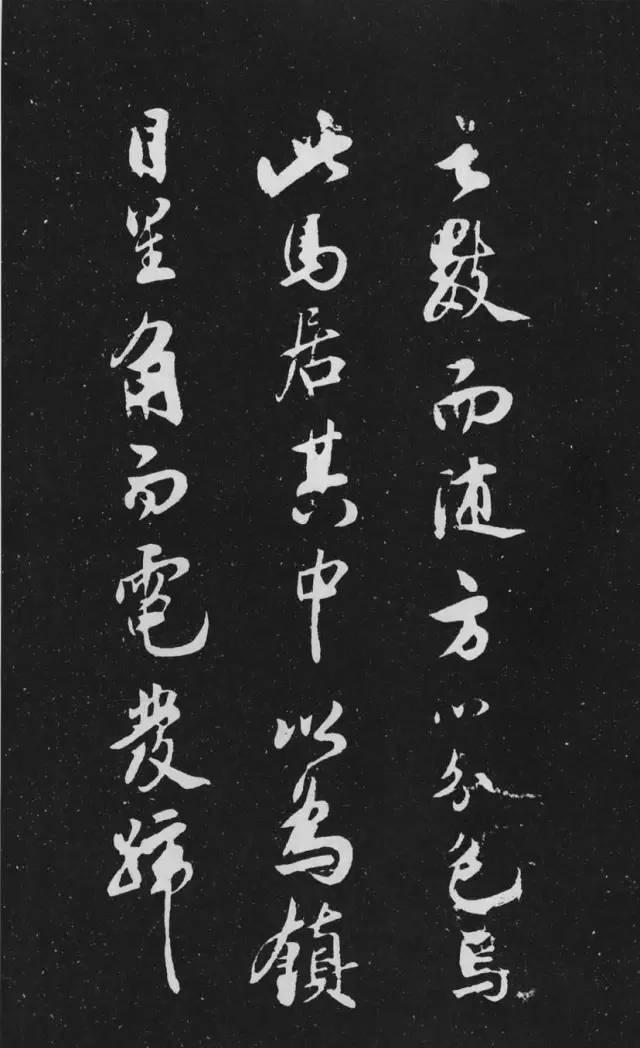 之數而随方以分色焉
此馬居其中以為鎮
目星角而電發蹄